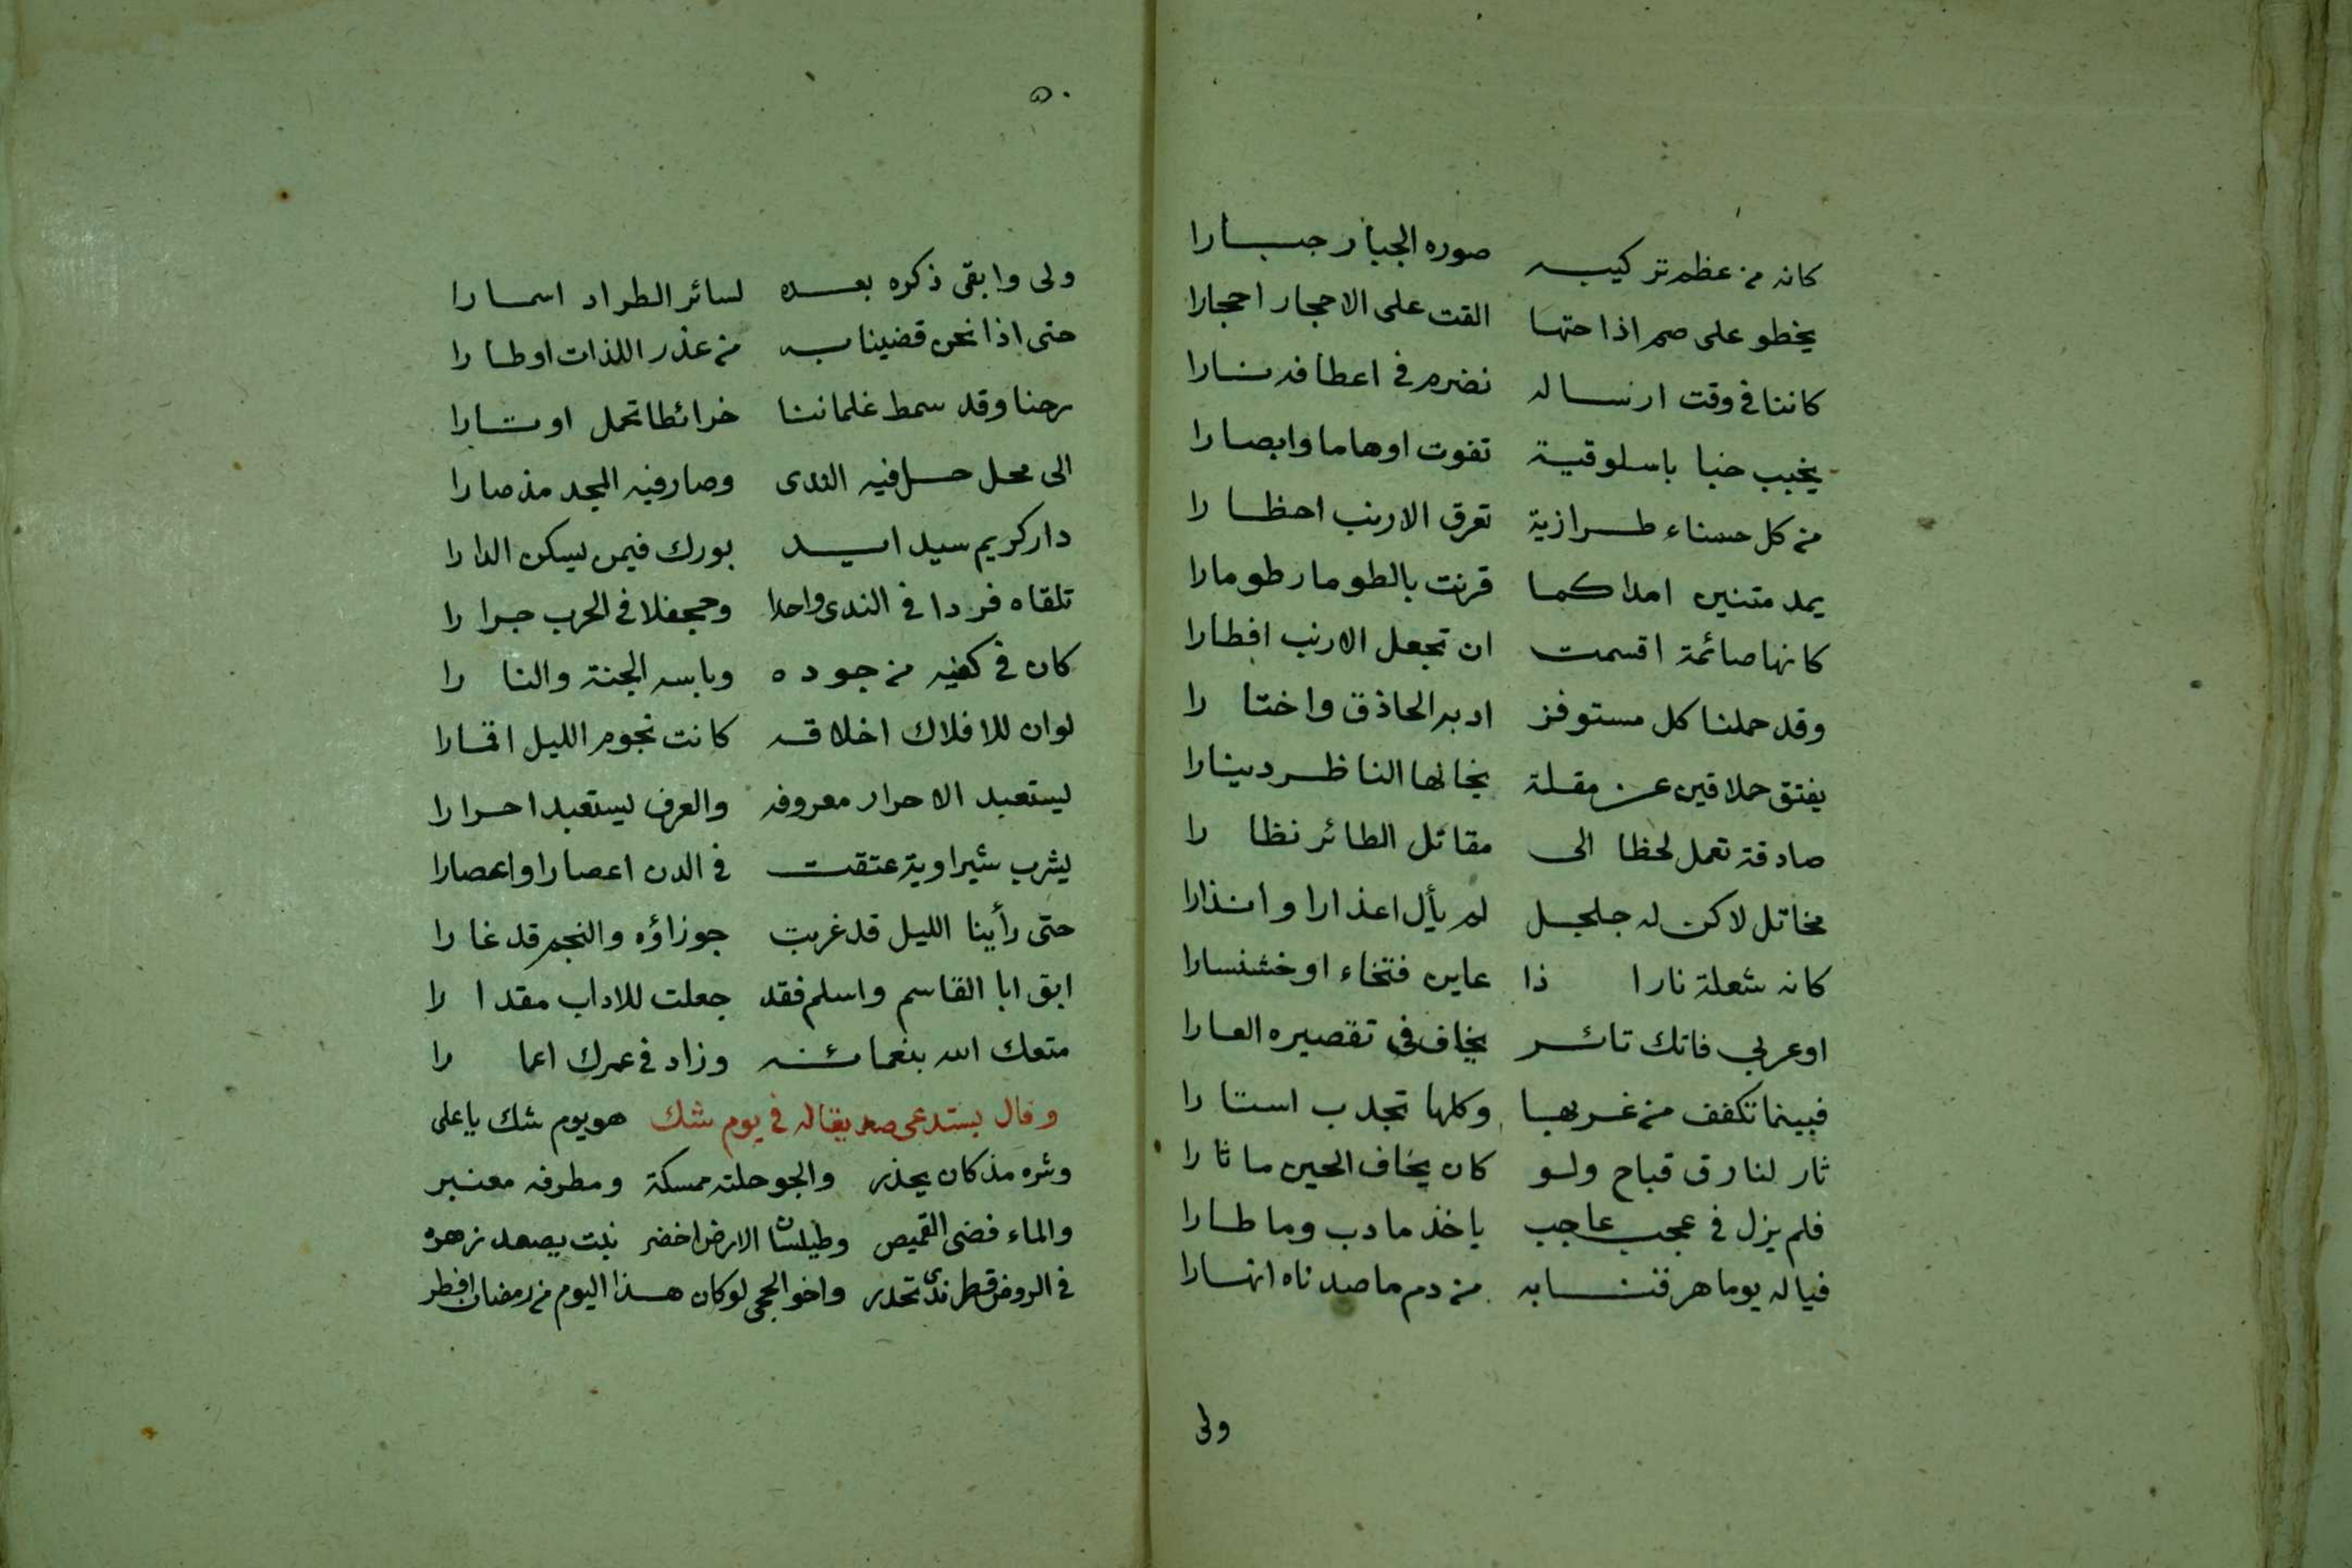 كانه من عظم تركيبه صوره الجبار جبارا
يخطو على صم اذا حتها القت على الاحجار احجارا
كاننا في وقت ارساله نضرم في اعطافه نارا
يخبب خبا باسلوقية تفوت اوهاما وابصارا
من كل حسناء طرازية تعرق الارنب احظارا
يمد متنين امدا كما قرنت بالطومار طومارا
كانها صائمة اقسمت ان تجعل الارنب افطارا
وقد حملنا كل مستوفز ادبه الحاذق واختارا
يفتق حملاقين عن مقلة يخالها الناظر دينارا
صادقة تعمل لحظا الى مقاتل الطائر نظارا
مخاتل لاكن له جلجل لم يأل اعذارا وانذارا
كانه شعلة نارا ذا عاين فتخاء او خشنسارا
او عربي فاتك ثائر يخاف في تقصيره العارا
فبينما تكفف من غربها وكلها تجدب استارا
ثار لنا رق قباح ولو كان يخاف الحين ما ثارا
فلم يزل في عجب عاجب ياخذ ما دب وما طارا
فياله يوما هرقنا به من دم ما صدناه انهارا
ولى
٥٠
ولى وابقى ذكره بعده لسائر الطراد اسمارا
حتى اذا نحن قضينا به من عذر اللذات اوطارا
رحنا وقد سمط غلماننا خرائطا تحمل اوتارا
الى محل حل فيه الندى وصار فيه المجد مذ صارا
دار كريم سيد ايد بورك فيمن يسكن الدارا
تلقاه فردا في الندى واحدا وجحفلا في الحرب جرارا
كان في كفيه من جوده وباسه الجنة والنارا
لو ان للافلاك اخلاقه كانت نجوم الليل اقمارا
يستعبد الاحرار معروفه والعرف يستعبد احرارا
يشرب شيراوية عتقت في الدن اعصارا واعصارا
حتى رأينا الليل قد غربت جوزاؤه والنجم قد غارا
ابق ابا القاسم واسلم فقد جعلت للاداب مقدارا
متعك الله بنعمائه وزاد في عمرك اعمارا
وقال يستدعى صديقا له في يوم شك هو يوم شك يا على
وشره مذ كان يحذر والجو حلته ممسكة ومطرفه معنبر
والماء فضى القميص وطيلسان الارض اخضر نبت يصعد زهره
في الروض قطر ندى تحدر واخو الحجى لو كان هذا اليوم من رمضان افطر